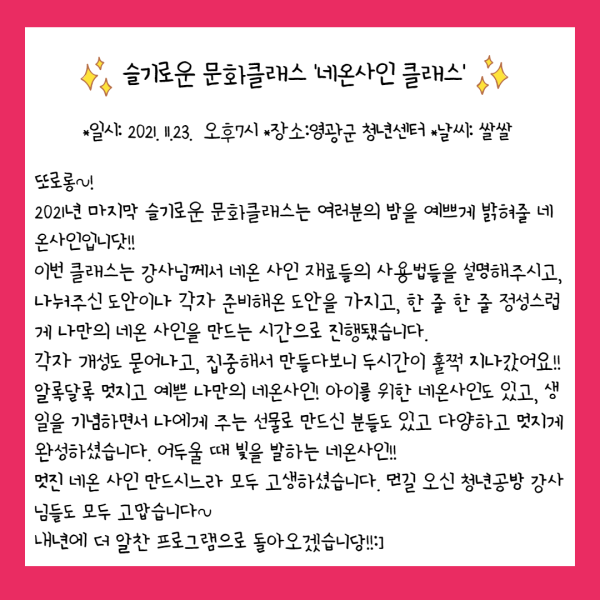 슬기로운 문화클래스 '네온사인 클래스'
*일시: 2021. 11.23. 오후7시 *장소:영광군 청년센터 *날씨: 쌀쌀
또로롱~!
2021년 마지막 슬기로운 문화클래스는 여러분의 밤을 예쁘게 밝혀줄 네
온사인입니닷!!
이번 클래스는 강사님께서 네온 사인 재료들의 사용법들을 설명해주시고,
나눠주신 도안이나 각자 준비해온 도안을 가지고, 한 줄 한 줄 정성스럽
게 나만의 네온 사인을 만드는 시간으로 진행됐습니다.
각자 개성도 묻어나고, 집중해서 만들다보니 두시간이 훌쩍 지나갔어요!!
알록달록 멋지고 예쁜 나만의 네온사인! 아이를 위한 네온사인도 있고, 생
일을 기념하면서 나에게 주는 선물로 만드신 분들도 있고 다양하고 멋지게
완성하셨습니다. 어두울 때 빛을 발하는 네온사인!!
멋진 네온 사인 만드시느라 모두 고생하셨습니다. 먼길 오신 청년공방 강사
님들도 모두 고맙습니다~
내년에 더 알찬 프로그램으로 돌아오겠습니당!!:]